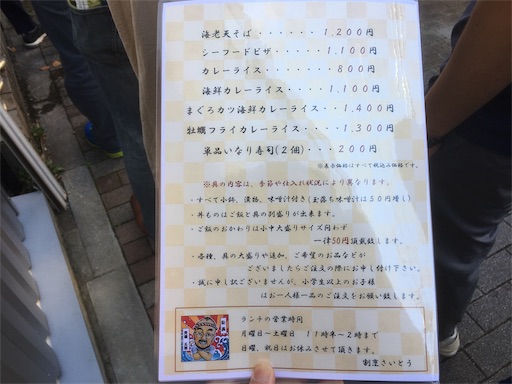 海老天そば・・・・・・1,200円
シーフードピザ・・・・・1,100円
カレーライス・・・・・・・800円
海鮮カレーライス・・・・1,100円
まぐろカツ海鮮カレーライス・・1,400円
牡蠣フライカレーライス・・・・1,300円
単品いなり寿司(2個)・・・200円
※表示価格はすべて税込み価格です。
※具の内容は、季節や仕入れ状況により異なります。
・すべて小鉢、漬物、味噌汁付き(玉落ち味噌汁は50円増し)
・丼ものはご飯と具の別盛りが出来ます。
・ご飯のおかわりは小中大盛りサイズ問わず
一律50円頂戴致します。
・各種、具の大盛りや追加、ご希望のお品などが
ございましたらご注文の際にお申し付け下さい。
・誠に申し訳ございませんが、小学生以上のお子様
はお一人様一品のご注文をお願い致します。
ランチの営業時間
月曜日〜土曜日 11時半〜2時まで
日曜、祝日はお休みさせて頂きます。
割烹さいとう